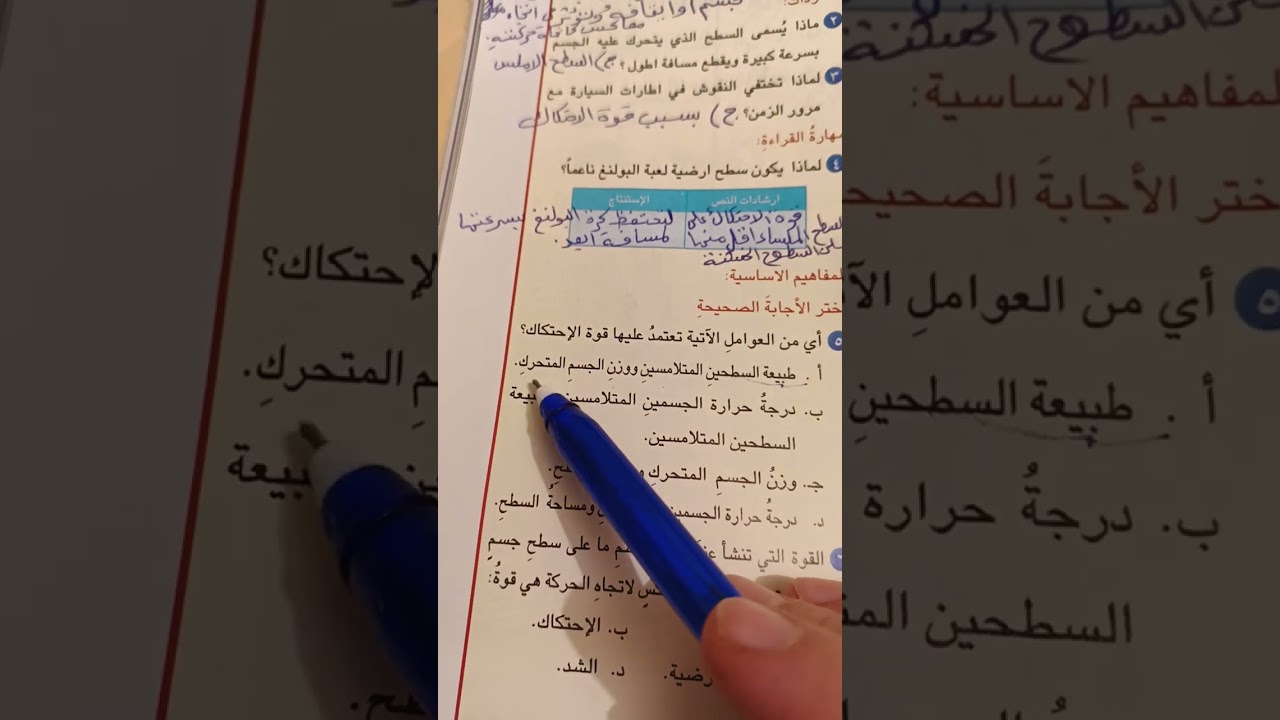 ٢ ماذا يُسمى السطح الذي يتحرك عليه الجسم
بسرعة كبيرة ويقطع مسافة اطول؟ ج) السطح الاملس
٣ لماذا تختفي النقوش في اطارات السيارة مع
مرور الزمن؟ ج) بسبب قوة الاحتكاك
مهارةُ القراءةِ:
٤ لماذا يكون سطح ارضية لعبة البولنغ ناعماً؟
ارشادات النص
الإستنتاج
قوة الاحتكاك على
السطح الملساء اقل منها
على السطوح الخشنة
لتحتفظ كرة البولنغ بسرعتها
لمسافة ابعد.
المفاهيم الاساسية:
ختر الأجابةَ الصحيحةِ
٥ أي من العواملِ الآتية تعتمدُ عليها قوة الإحتكاك؟
أ . طبيعة السطحينِ المتلامسينِ ووزنِ الجسمِ المتحركِ.
ب. درجةُ حرارة الجسمينِ المتلامسينِ
السطحين المتلامسين.
جـ. وزنُ الجسمِ المتحركِ
د. درجةُ حرارة الجسمينِ ومساحةُ السطحِ.
القوة التي تنشأ ما على سطحِ جسمٍ
لاتجاهِ الحركة هي قوةُ:
ب. الإحتكاك.
د. الشد.